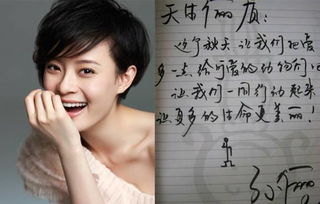 天生俪质：
这个秋天 让我们把爱
多一点 给可爱的动物们吧
让我们一同行动起来
让更多的生命更美丽！
孙俪